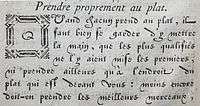 Prendre proprement au plat.
Quand chacun prend au plat, il
faut bien se garder d'y mettre
la main, que les plus qualifiés
ne l'y aient mise les premiers;
ni prendre ailleurs qu'à l'endroit du
plat qui est devant vous: moins encore
doit-on prendre les meilleurs morceaux,